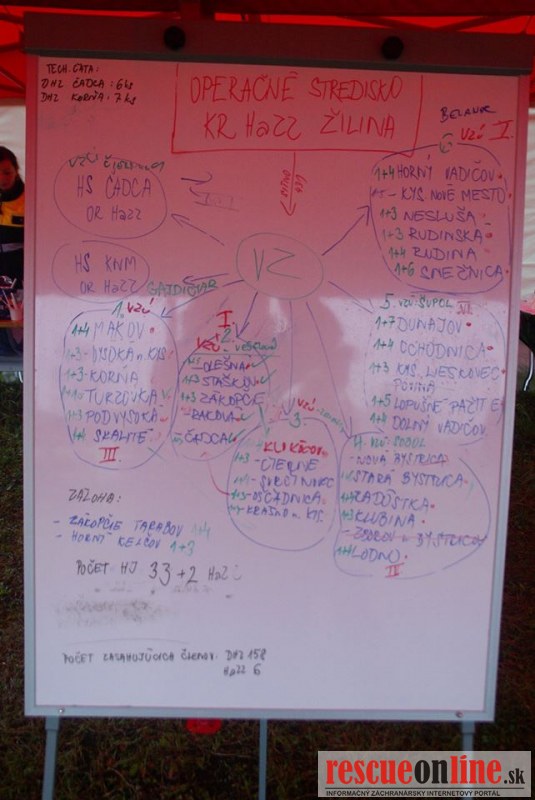 TECH. CATA:
DHZ ČADCA: 6 ks
DHZ KORŇA: 7 ks
OPERAČNÉ STREDISKO
KR HaZZ ŽILINA
HS ČADCA
OR HaZZ
HS KNM
OR HaZZ
GAJDICIAR
VZ
6 VZÚ V.
1+4 HORNÝ VADIČOV
KYS. NOVÉ MESTO
1+3 NESLUŠA
1+3 RUDINSKÁ
1+4 RUDINA
1+6 SNEŽNICA
5. VZÚ
1+7 DUNAJOV
1+4 OCHODNICA
1+3 KYS. LIESKOVEC
1+5 LOPUŠNÉ PAŽITE
1+4 DOLNÝ VADIČOV
1. VZÚ
1+4 MAKOV
1+3 - VYSOKÁ n. KYS.
1+3 - KORŇA
TURZOVKA
1+3 PODVYSOKÁ
1+4 SKALITÉ
III.
I.
VZÚ 2.
OLEŠNÁ
1+3 STAŠKOV
1+3 ZÁKOPČIE
RAKOVÁ
ČADCA
VZÚ
3.
KLUKÍČOV
1+3 - ČIERNE
SVRČINOVEC
1+3 - OŠČADNICA
KRÁSNO n. KYS.
4. VZÚ
- NOVÁ BYSTRICA
STARÁ BYSTRICA
RADÔSTKA
1+3 KLUBINA
- ZBOROV n. BYSTRICOU
1+4 LODNO
IV
ZÁLOHA:
- ZÁKOPČIE TARABOV 1+4
- HORNÝ KELČOV 1+3
POČET HJ 33 + 2 HaZZ
POČET ZASAHUJÚCICH ČLENOV: DHZ 158
HaZZ 6
rescueonline.sk
INFORMAČNÝ ZÁCHRANÁRSKY INTERNETOVÝ PORTÁL